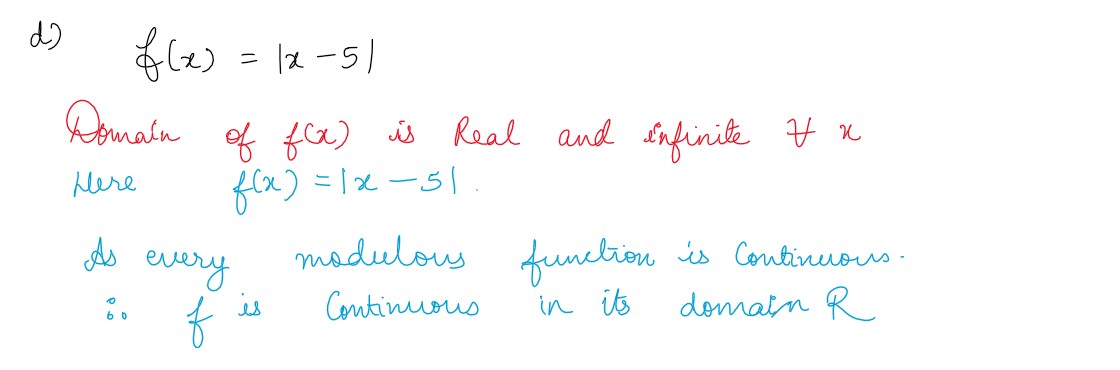 d) f(x) = |x - 5|
Domain of f(x) is Real and infinite ∀ x
Here f(x) = |x - 5|.
As every modulous function is Continuous.
∴ f is Continuous in its domain R